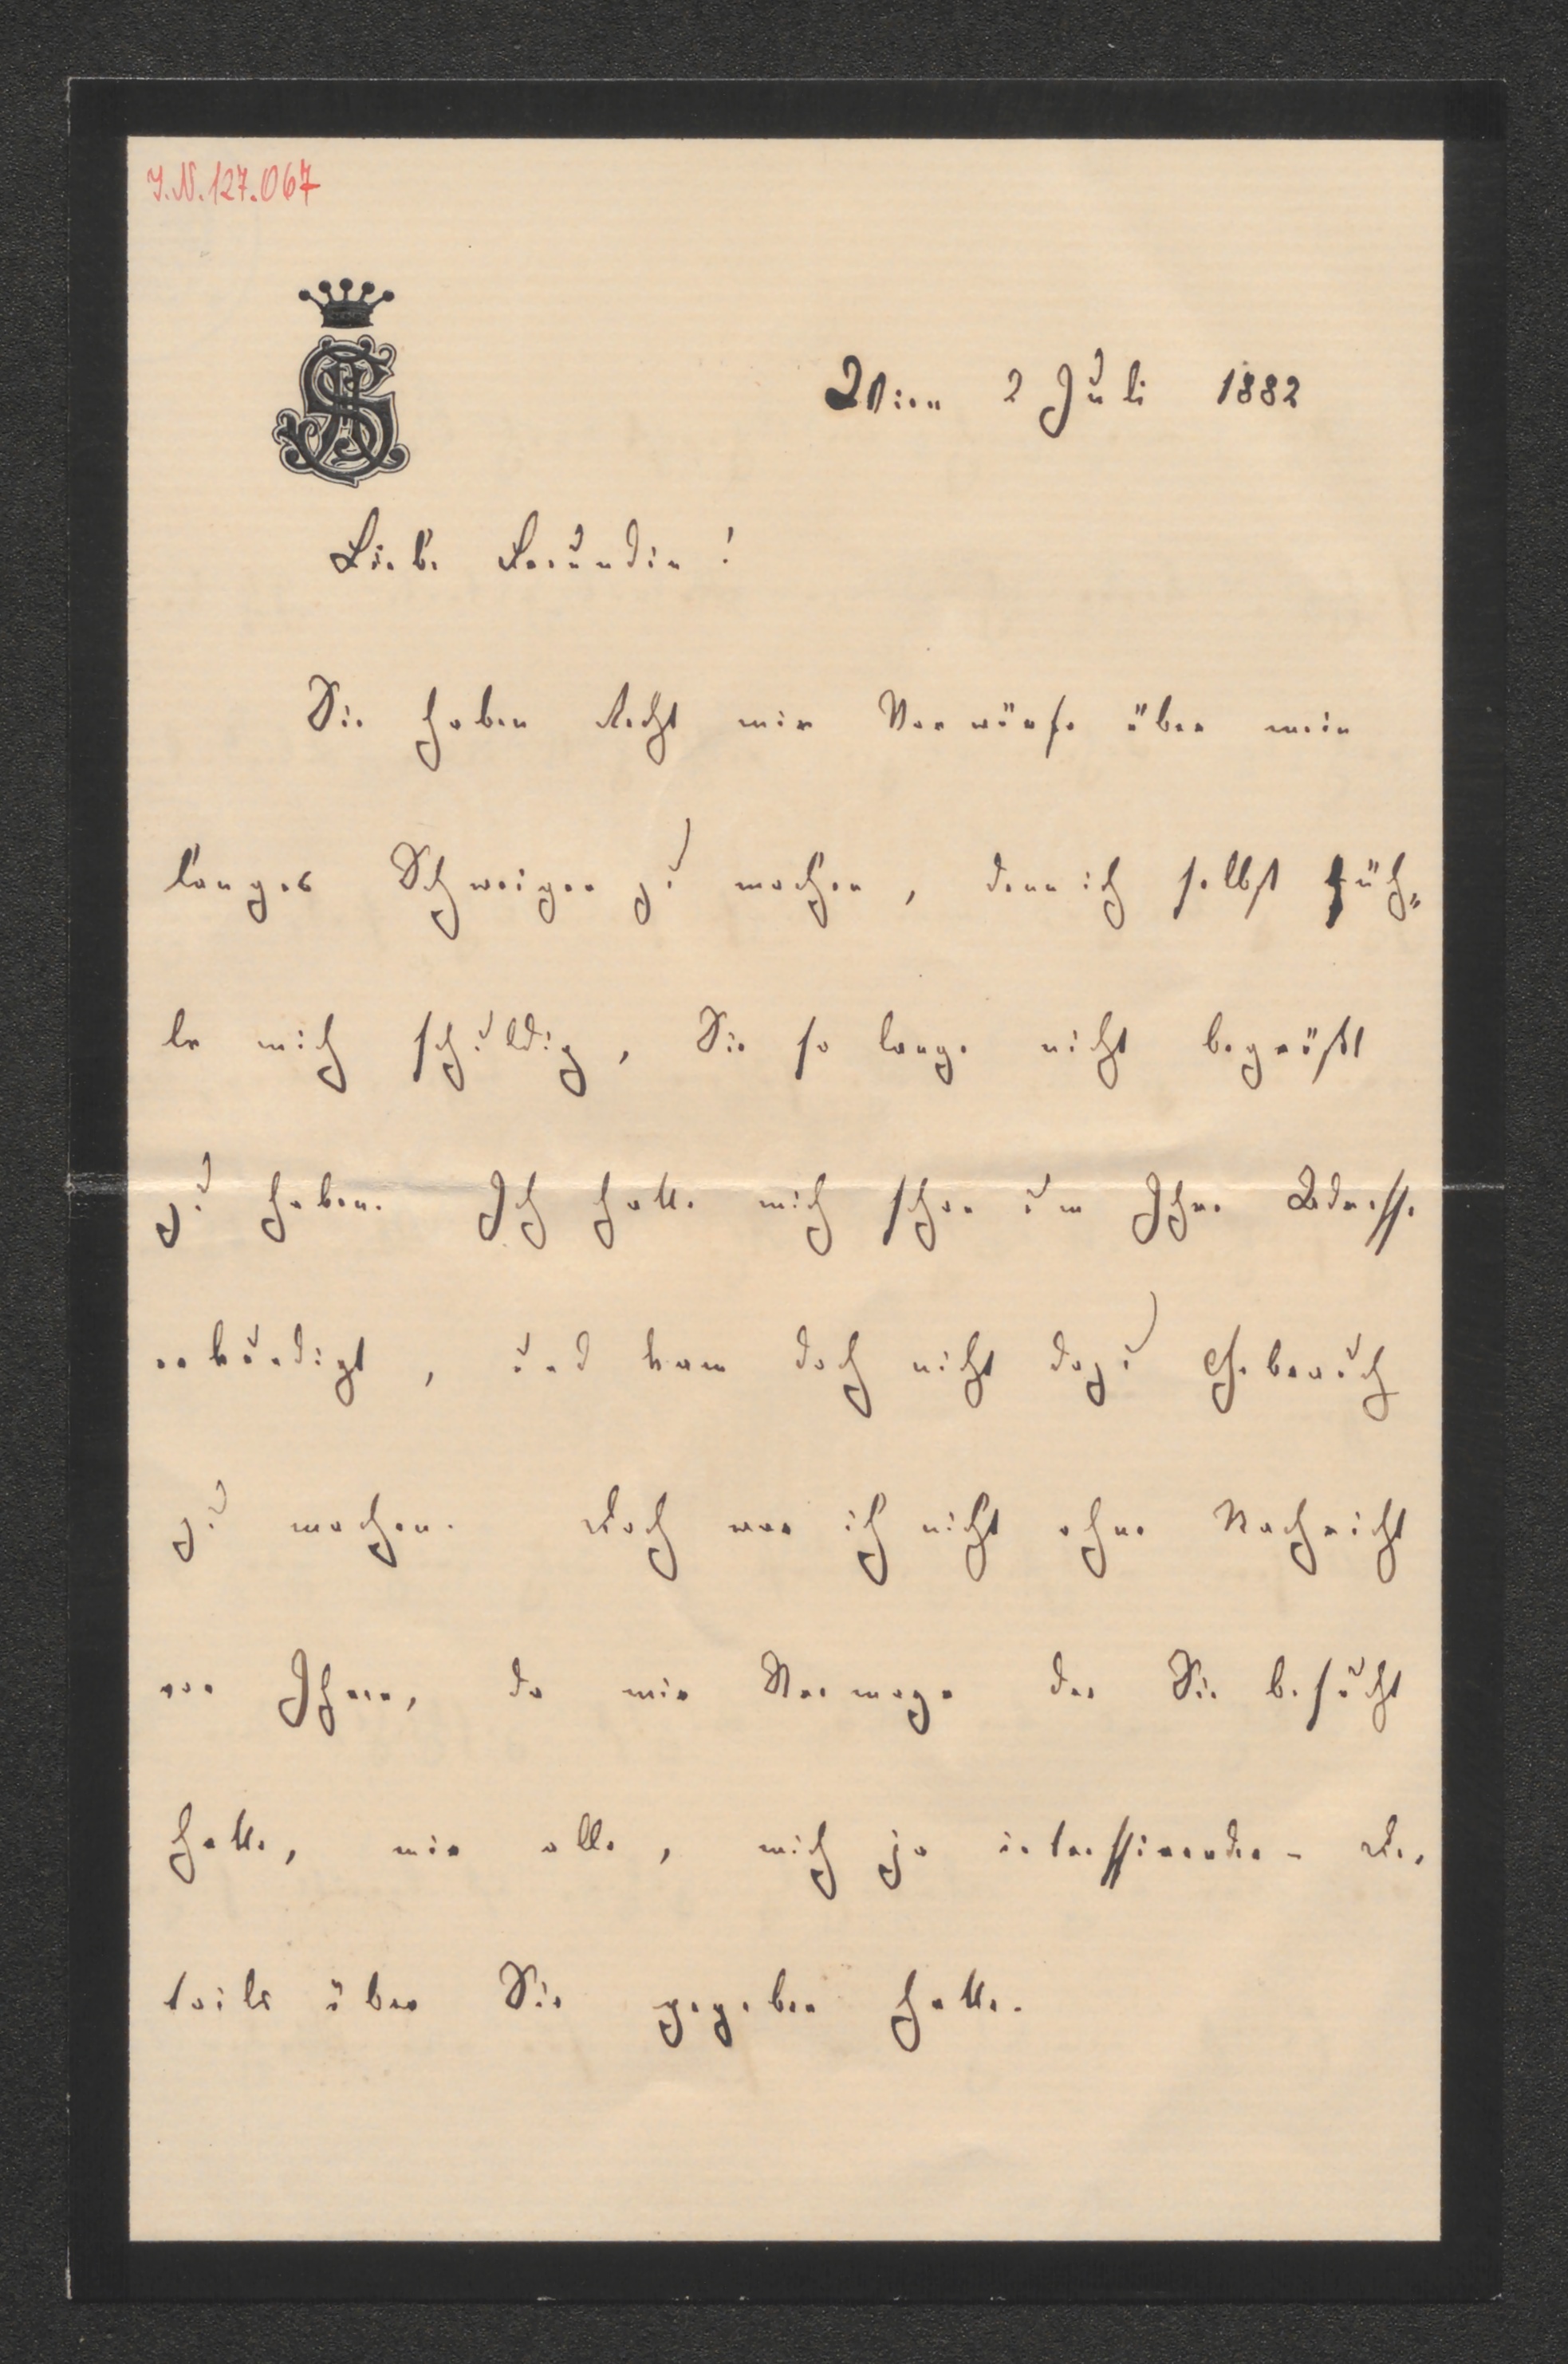 I.N. 127.067
Wien 2 Juli 1882
Liebe Freundin!
Sie haben Recht mir Vorwürfe über mein
langes Schweigen zu machen, denn ich selbst füh„
le mich schuldig, Sie so lange nicht begrüßt
zu haben. Ich hatte mich schon um Ihre Adresse
erkundigt, und kam doch nicht dazu Gebrauch
zu machen. Doch war ich nicht ohne Nachricht
von Ihnen, da mir der Sie besucht
hatte, mir alle, mich ja interessirenden – De,
tails über Sie gegeben hatte.